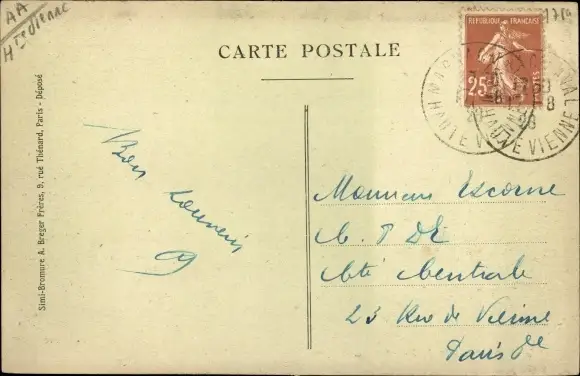 AA
Hte Vienne
CARTE POSTALE
RÉPUBLIQUE FRANÇAISE
25
HAUTE VIENNE
Simi-Bromure A. Breger Frères, 9, rue Thénard, Paris - Déposé
Bon souvenir
Monsieur Escorne
Centrale
23 Rue de Vienne
Paris 8e